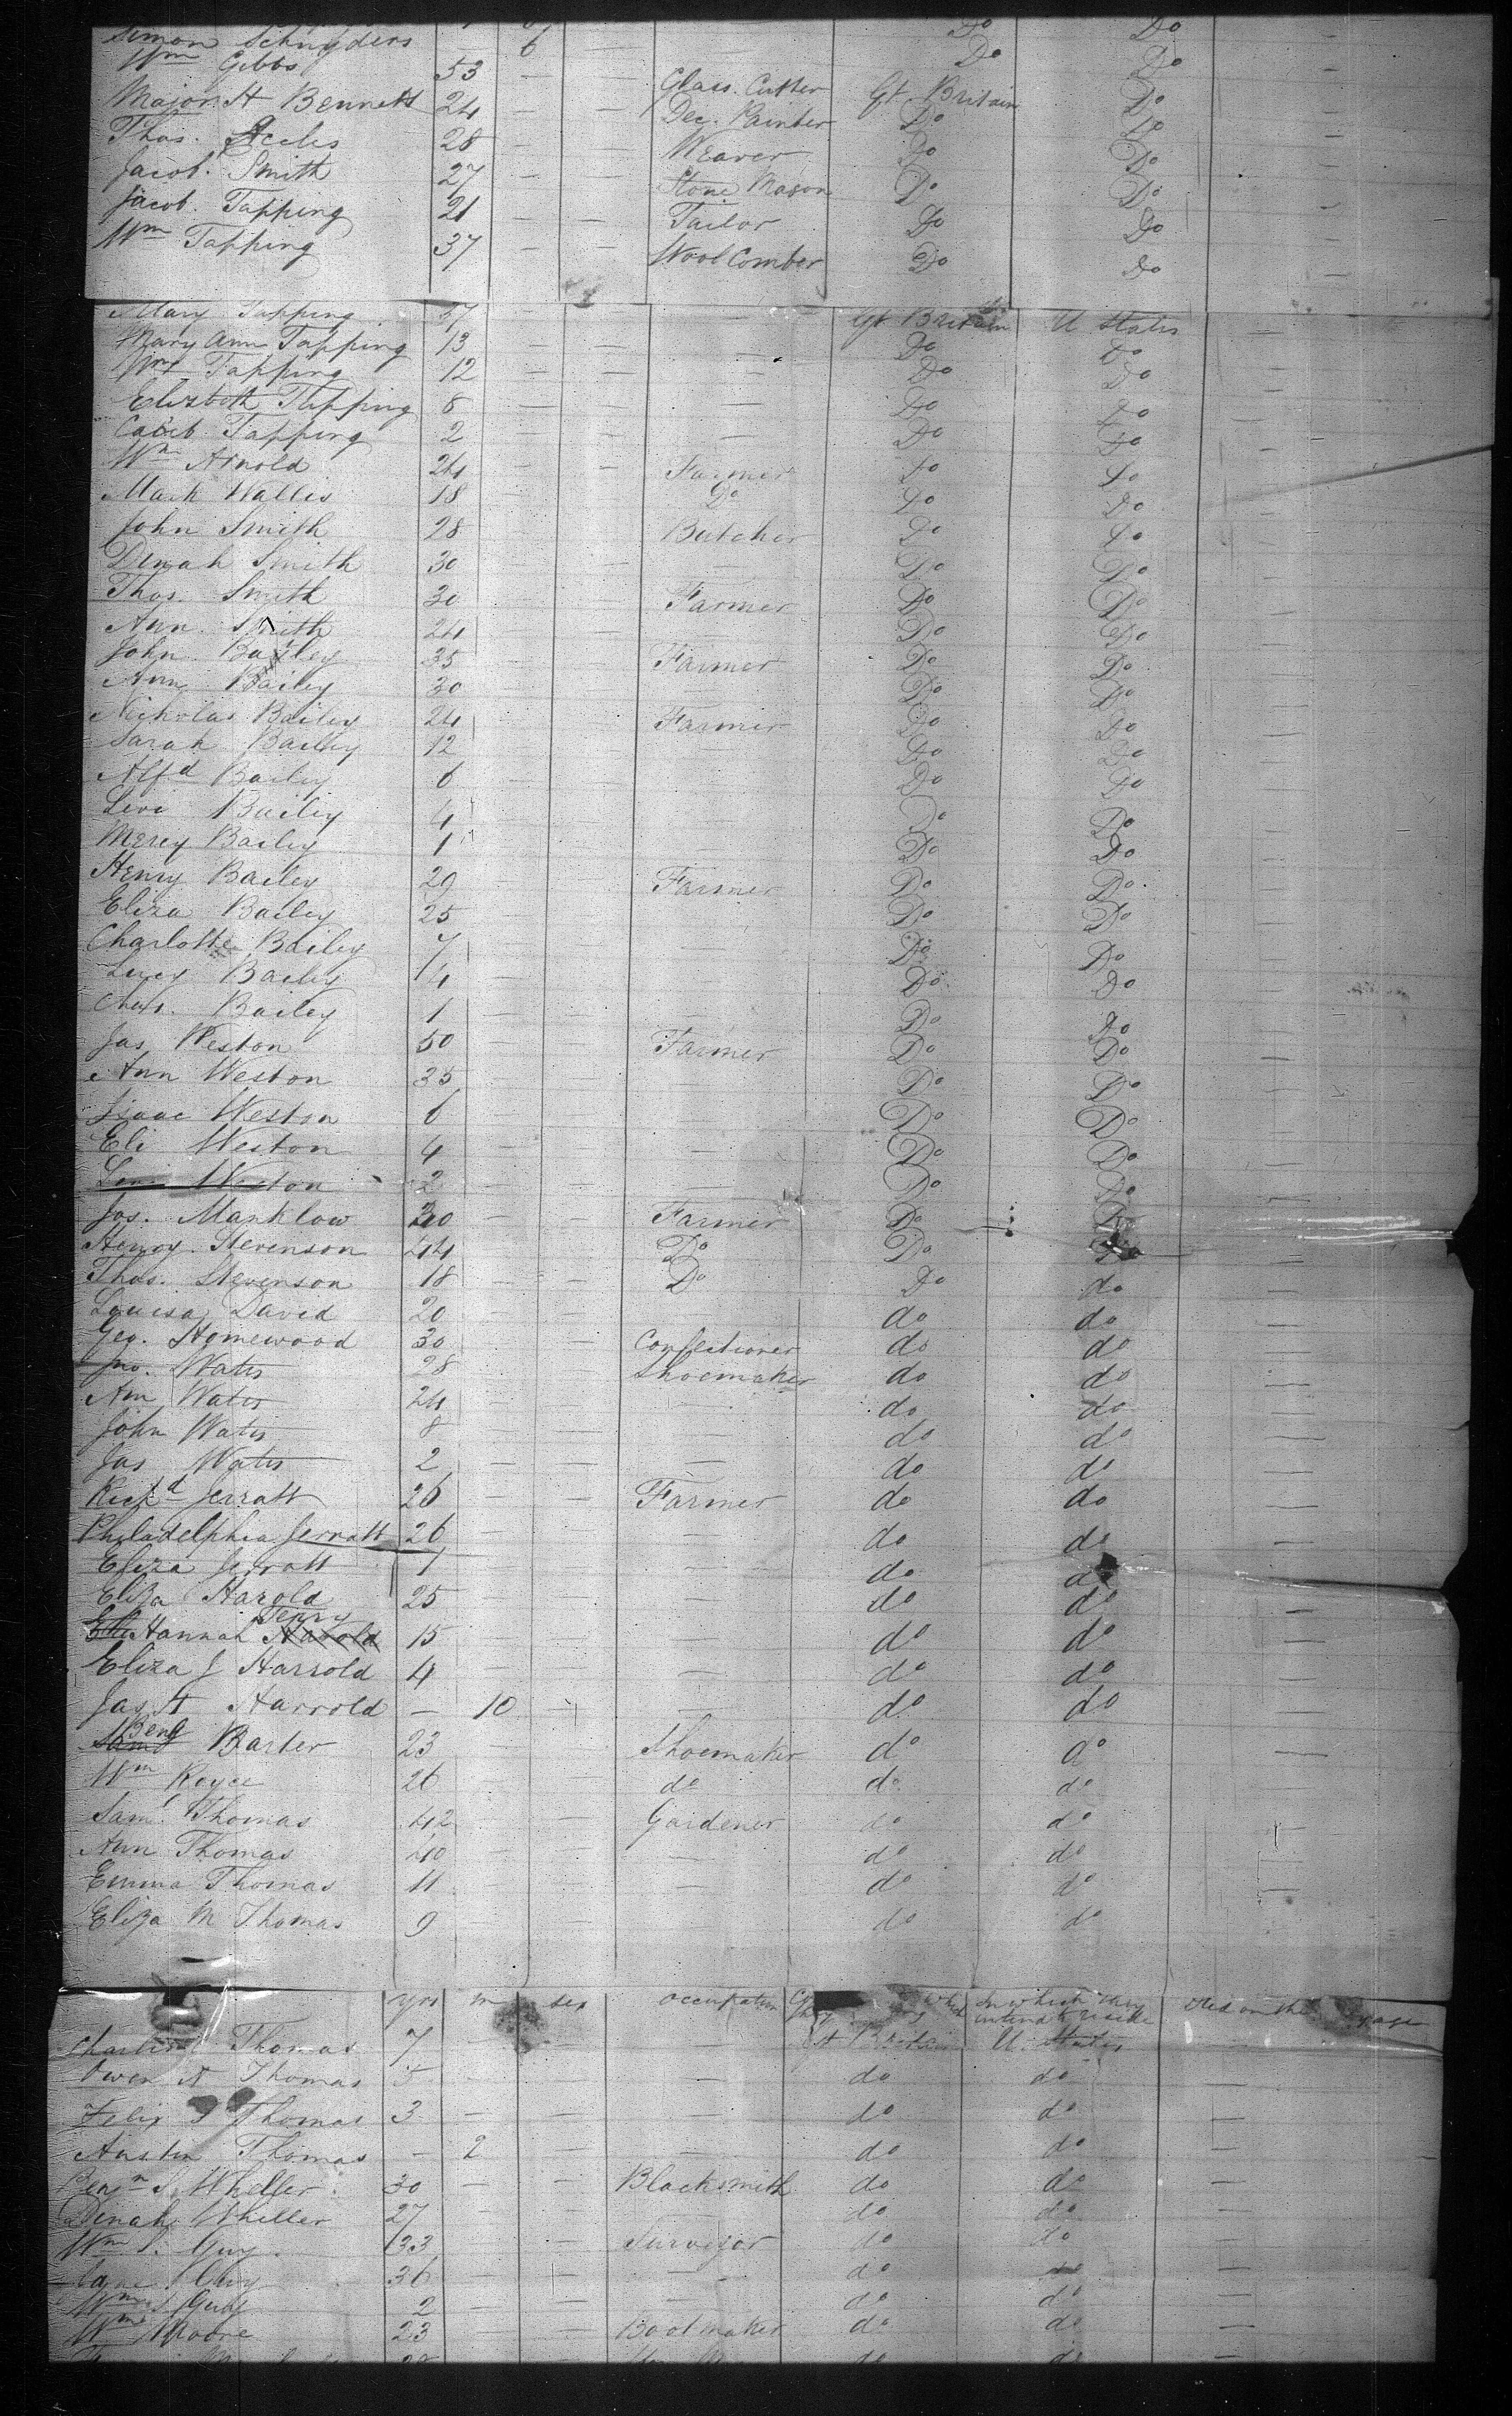 Simon Schnyders 6 Do Do
Wm Gibbs 53 Glass Cutter Gt Britain Do
Major H Bennett 24 Dec. Painter Do Do
Thos. Eccles 28 Weaver Do Do
Jacob. Smith 27 Stone Mason Do Do
Jacob. Tapping 21 Tailor Do Do
Wm Tapping 37 Wool Comber Do Do
Mary Tapping 37 Gt Britain U States
Mary Ann Tapping 13 Do Do
Wm Tapping 12 Do Do
Elizbeth Tapping 8 Do Do
Caleb Tapping 2 Do Do
Wm Arnold 24 Farmer Do Do
Mark Wallis 18 Do Do Do
John Smith 28 Butcher Do Do
Dinah Smith 30 Do Do
Thos. Smith 30 Farmer Do Do
Ann Smith 24 Do Do
John Bailey 35 Farmer Do Do
Ann Bailey 30 Do Do
Nicholas Bailey 24 Farmer Do Do
Sarah Bailey 12 Do Do
Alfd Bailey 6 Do Do
Levi Bailey 4 Do Do
Mercy Bailey 1 Do Do
Henry Bailey 29 Farmer Do Do
Eliza Bailey 25 Do Do
Charlotte Bailey 7 Do Do
Lucy Bailey 4 Do Do
Chas. Bailey 1 Do Do
Jas Weston 50 Farmer Do Do
Ann Weston 35 Do Do
Isaac Weston 6 Do Do
Eli Weston 4 Do Do
Weston 2 Do Do
Jos. Manklow 30 Farmer Do Do
Henry Stevenson 44 Do Do Do
Thos. Stevenson 18 Do Do do
Louisa David 20 do do
Geo. Homewood 30 Confectioner do do
Jno. Wates 28 Shoemaker do do
Ann Wates 24 do do
John Wates 8 do do
Jas Wates 2 do do
Richd Jerratt 26 Farmer do do
Philadelphia Jerratt 26 do do
Eliza Jerratt 1 do do
Eliza Harold 25 do do
Terry
Hannah Harold 15 do do
Eliza J Harrold 4 do do
Jas H Harrold 10 do do
Benj
Barter 23 Shoemaker do do
Wm Royce 26 do do do
Saml Thomas 42 Gardener do do
Ann Thomas 40 do do
Emma Thomas 11 do do
Eliza M Thomas 9 do do
yrs m sex occupation in which they intend to reside died on the voyage
Charles Thomas 7 Gt Britain U. States
Owen N Thomas 5 do do
Felix S Thomas 3 do do
Austin Thomas 2 do do
Benjn S. Wheller 30 Blacksmith do do
Dinah Wheller 27 do do
Wm S. Guy 33 Surveyor do do
Jane Guy 36 do do
Wm S Guy 2 do do
Wm Moore 23 Bootmaker do do
do do